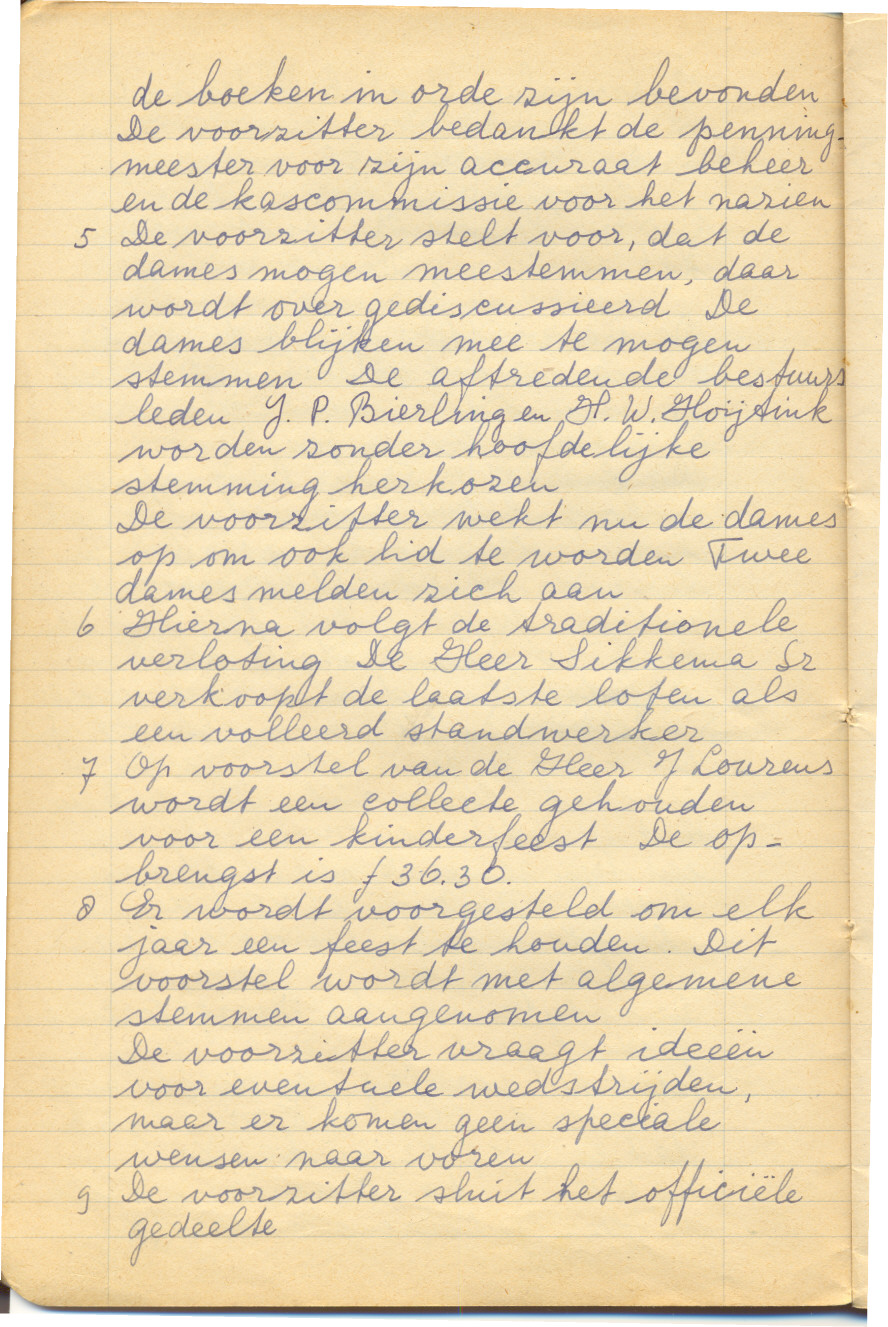 de boeken in orde zijn bevonden
De voorzitter bedankt de penning-
meester voor zijn accuraat beheer
en de kascommissie voor het nazien
5 De voorzitter stelt voor, dat de
dames mogen meestemmen, daar
wordt over gediscussieerd De
dames blijken mee te mogen
stemmen De aftredende bestuurs
leden J. P. Bierling en H. W. Hoijtink
worden zonder hoofdelijke
stemming herkozen
De voorzitter wekt nu de dames
op om ook lid te worden Twee
dames melden zich aan
6 Hierna volgt de traditionele
verloting De Heer Sikkema Sr
verkoopt de laatste loten als
een volleerd standwerker
7 Op voorstel van de Heer J Lourens
wordt een collecte gehouden
voor een kinderfeest De op=
brengst is f 36.30.
8 Er wordt voorgesteld om elk
jaar een feest te houden. Dit
voorstel wordt met algemene
stemmen aangenomen
De voorzitter vraagt ideeën
voor eventuele wedstrijden,
maar er komen geen speciale
wensen naar voren
9 De voorzitter sluit het officiële
gedeelte